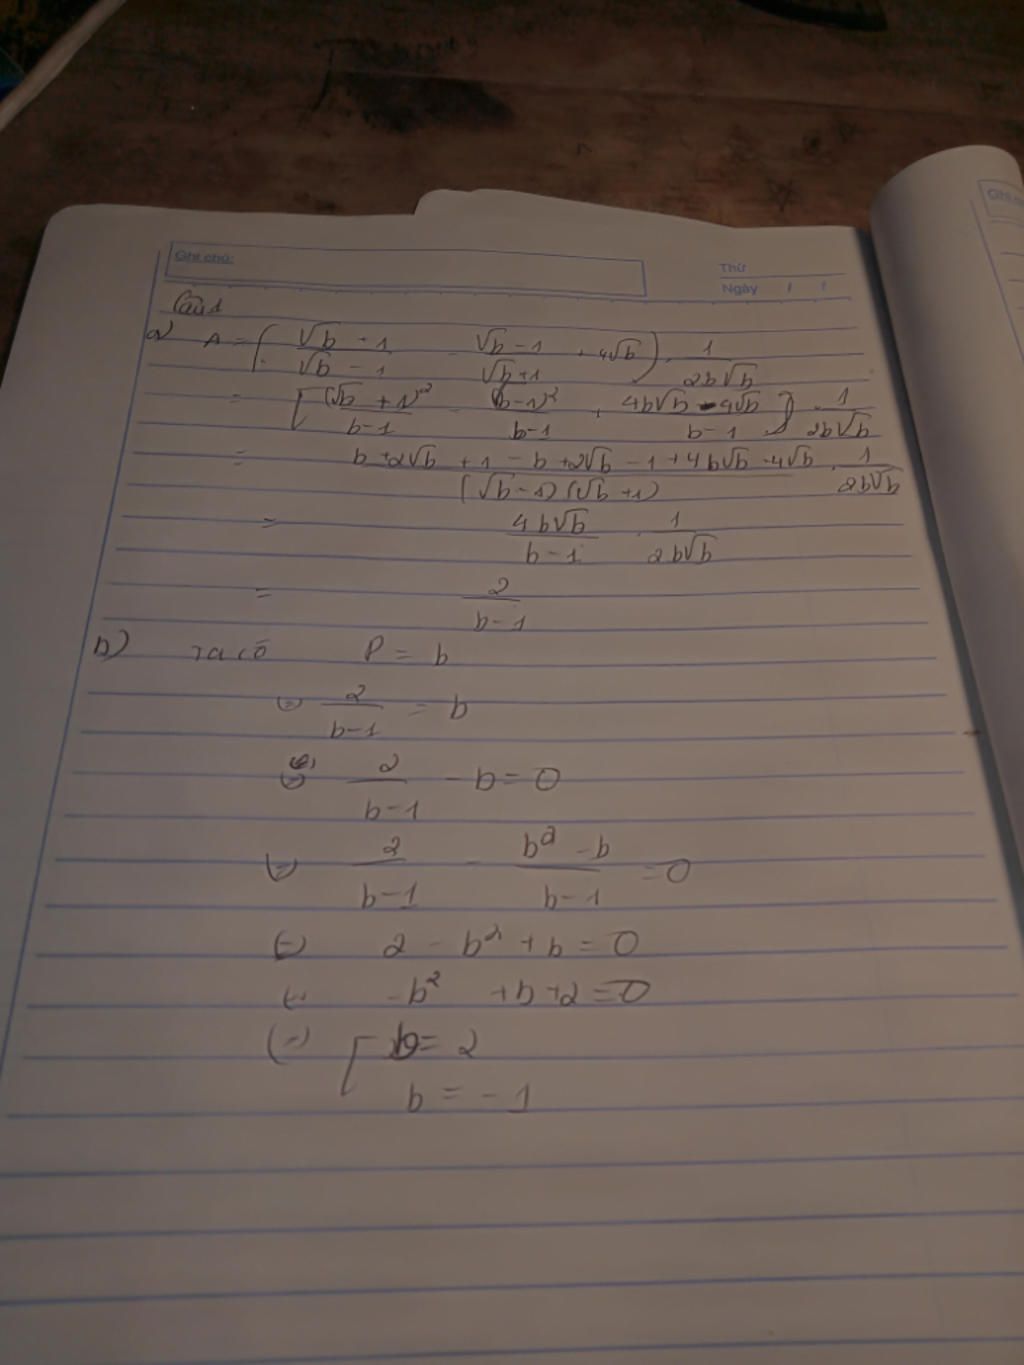 Ghi chú:
Thứ
Ngày / /
Câu 1
a) A = ( (√b + 1)/(√b - 1) - (√b - 1)/(√b + 1) + 4√b ) . 1/(2b√b)
= [ (√b + 1)²/(b-1) - (√b-1)²/(b-1) + (4b√b - 4√b)/(b-1) ] . 1/(2b√b)
= (b + 2√b + 1 - b + 2√b - 1 + 4b√b - 4√b)/((√b - 1)(√b + 1)) . 1/(2b√b)
= 4b√b/(b-1) . 1/(2b√b)
= 2/(b-1)
b) Ta có P = b
(=) 2/(b-1) = b
(=) 2/(b-1) - b = 0
(=) 2/(b-1) - (b² - b)/(b-1) = 0
(=) 2 - b² + b = 0
(=) -b² + b + 2 = 0
(=) [ b = 2
b = -1